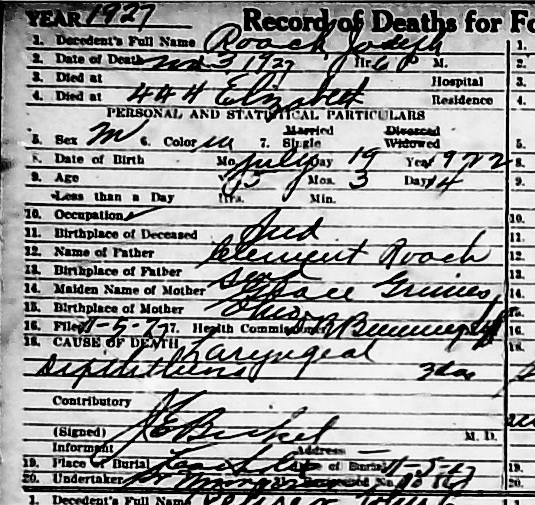 YEAR 1927 Record of Deaths for Fo
1. Decedent's Full Name Roach Joseph 1.
2. Date of Death Nov 3 1927 Hr. 6 P M. 2.
3. Died at Hospital 3.
4. Died at 444 Elizabeth Residence 4.
PERSONAL AND STATISTICAL PARTICULARS
Married Divorced
5. Sex M 6. Color W 7. Single Widowed 5.
8. Date of Birth Mo. July Day 19 Year 1922 8.
9. Age Yrs. 5 Mos. 3 Days 14 9.
Less than a Day Hrs. Min.
10. Occupation 10.
11. Birthplace of Deceased Ind 11.
12. Name of Father Clement Roach 12.
13. Birthplace of Father Ind 13.
14. Maiden Name of Mother Grace Grimes 14.
15. Birthplace of Mother Ohio 15.
16. Filed 11-5-27 17. Health Commissioner 16.
18. CAUSE OF DEATH Laryngeal 18.
Diphtheria 3 das
Contributory
(Signed) J E Bickel M. D.
Informant Address
19. Place of Burial of Burial 11-5-27 19.
20. Undertaker No. 20.
1. Decedent's Full Name 1.